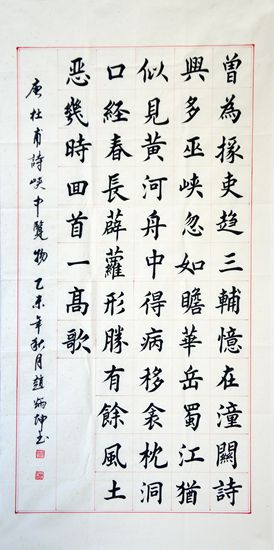 曾為掾吏趋三輔憶在潼關詩
興多巫峡忽如瞻華岳蜀江猶
似見黃河舟中得病移衾枕洞
口経春長薜蘿形勝有餘風土
恶幾時回首一高歌
唐杜甫詩峡中覽物乙未年秋月趙炳坤书